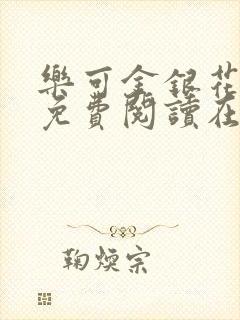 樂可金銀花
免費閱讀在
鞠煐宗